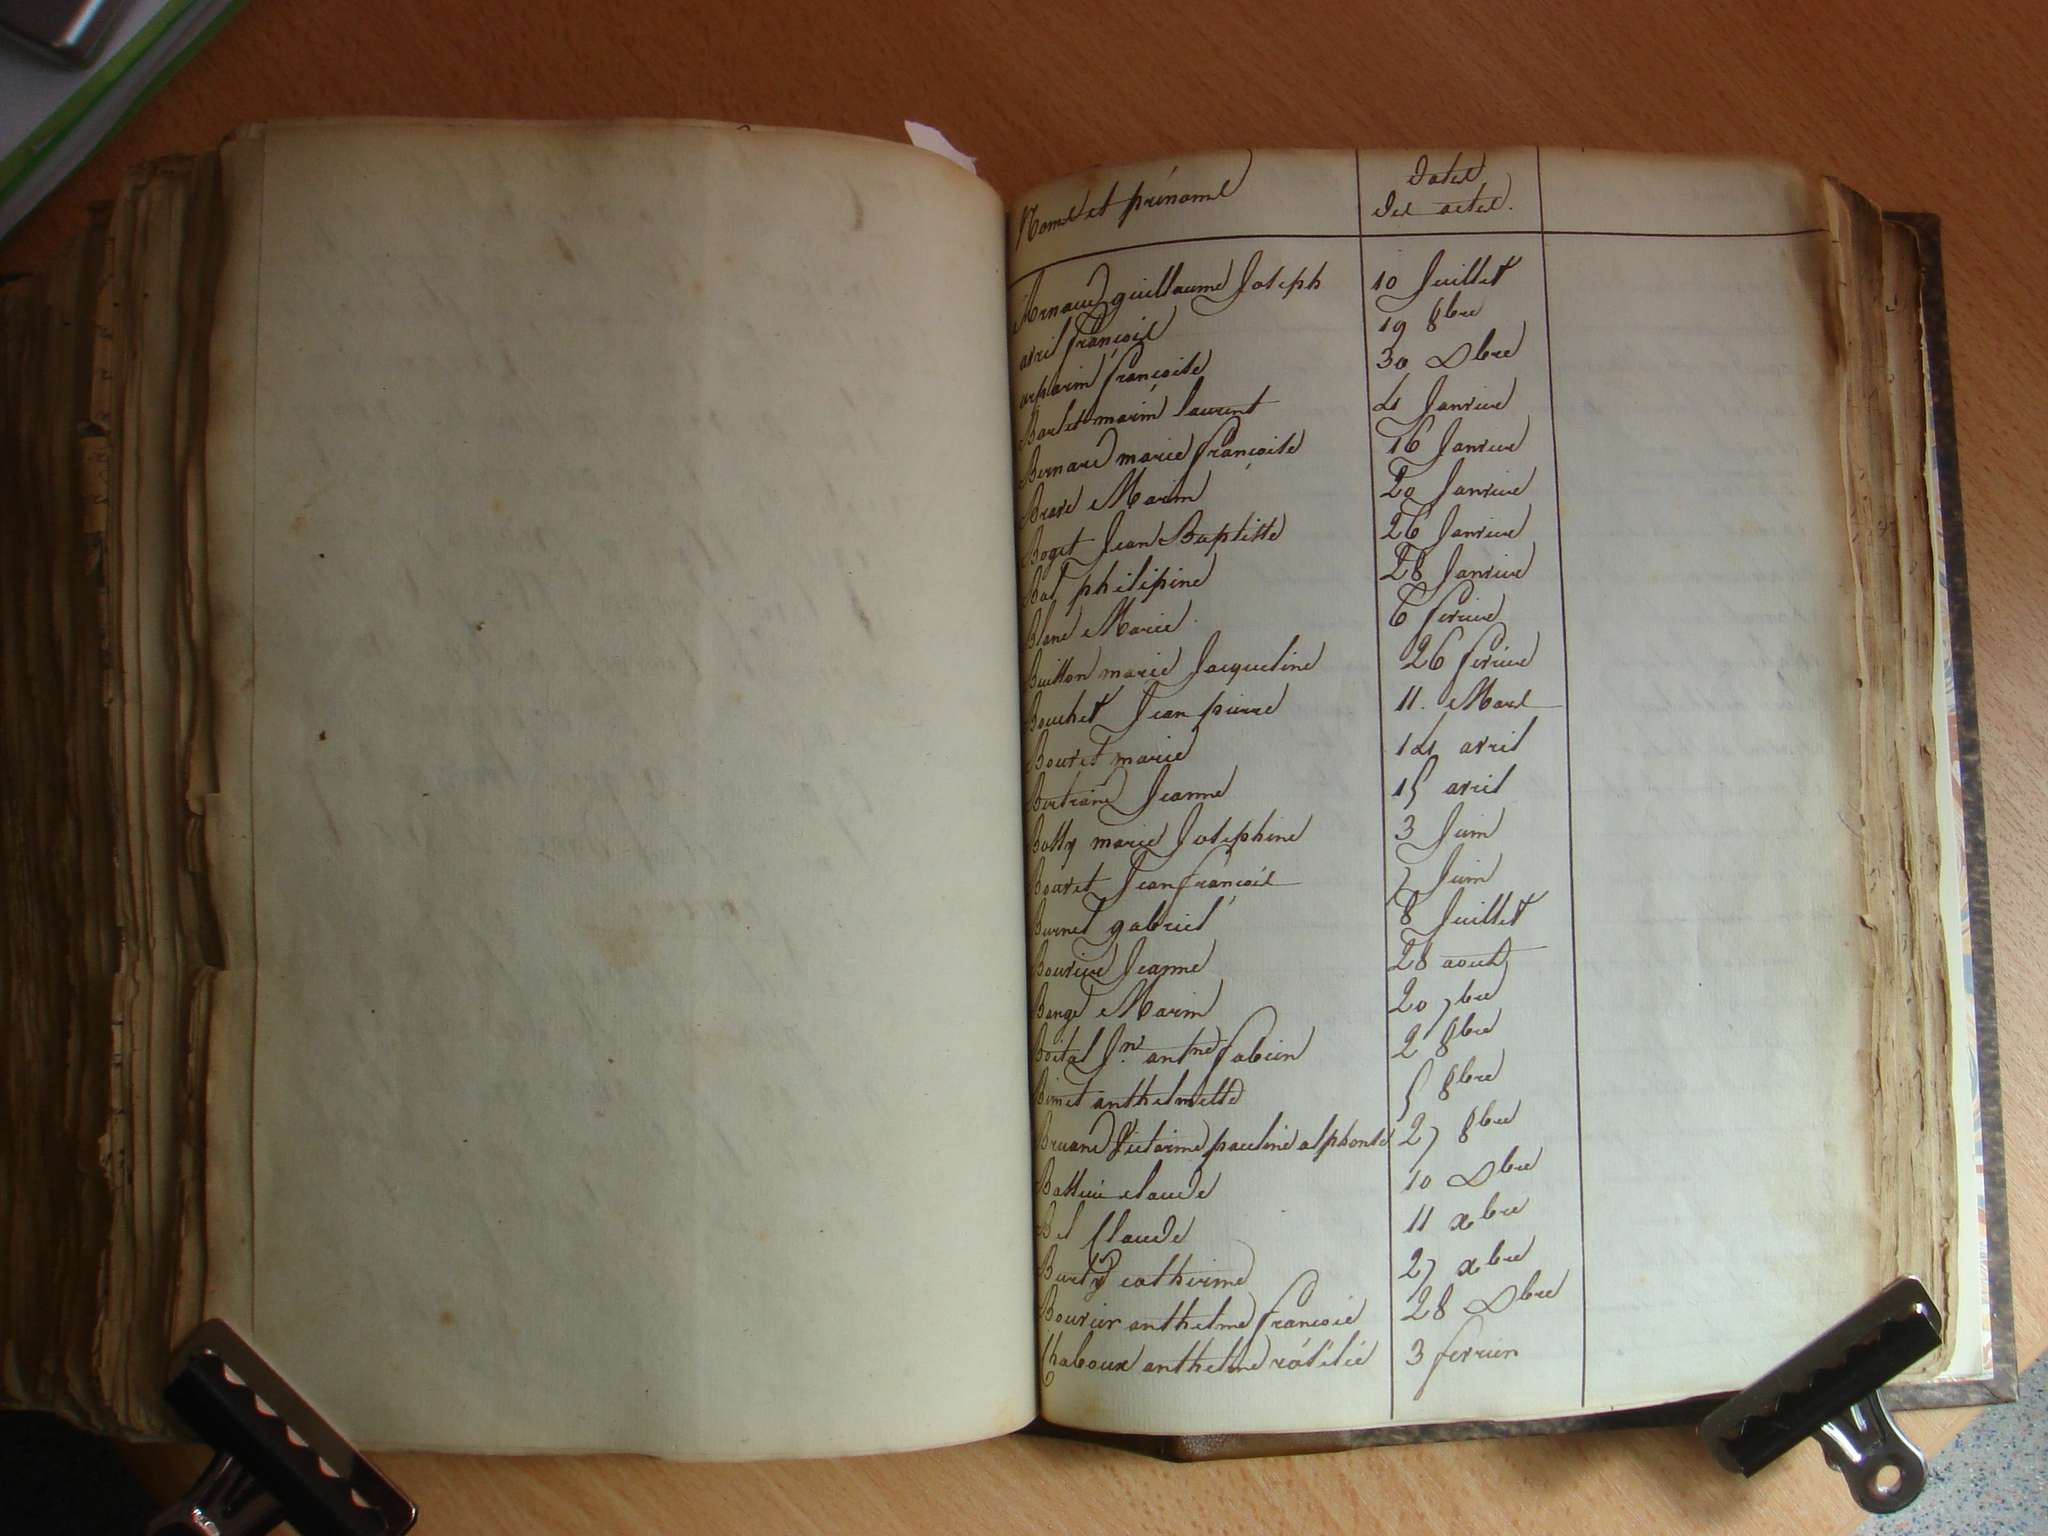 Noms et prénoms
dates
des actes.
Arnaud guillaume Joseph 10 Juillet
avril françois 19 8bre
arparin françoise 30 Dbre
Barlet marin laurent 4 Janvier
Bernard marie françoise 16 Janvier
Brave Marin 20 Janvier
Boget Jean Baptiste 26 Janvier
Bal philipine 28 Janvier
Blanc Marie 6 fevrier
Buisson marie Jacqueline 26 fevrier
Bouchet Jean pierre 11. Mars
Bouvet marie 14 avril
Bertrand Jeanne 15 avril
Bossy marie Josephine 3 Juin
Bouvet Jean françois 7 Juin
Burnet gabriel 8 Juillet
Bouvier Jeanne 28 aout
Bange Marin 20 7bre
Jn antne fabien 2 8bre
Binet anthelmette 5 8bre
Bruand Victorine pauline alphonse 27 8bre
claude 10 Dbre
Bel Claude 11 xbre
Burtey catherine 27 xbre
Bouvier anthelme francois 28 Dbre
Chaboux anthelme 3 fevrier